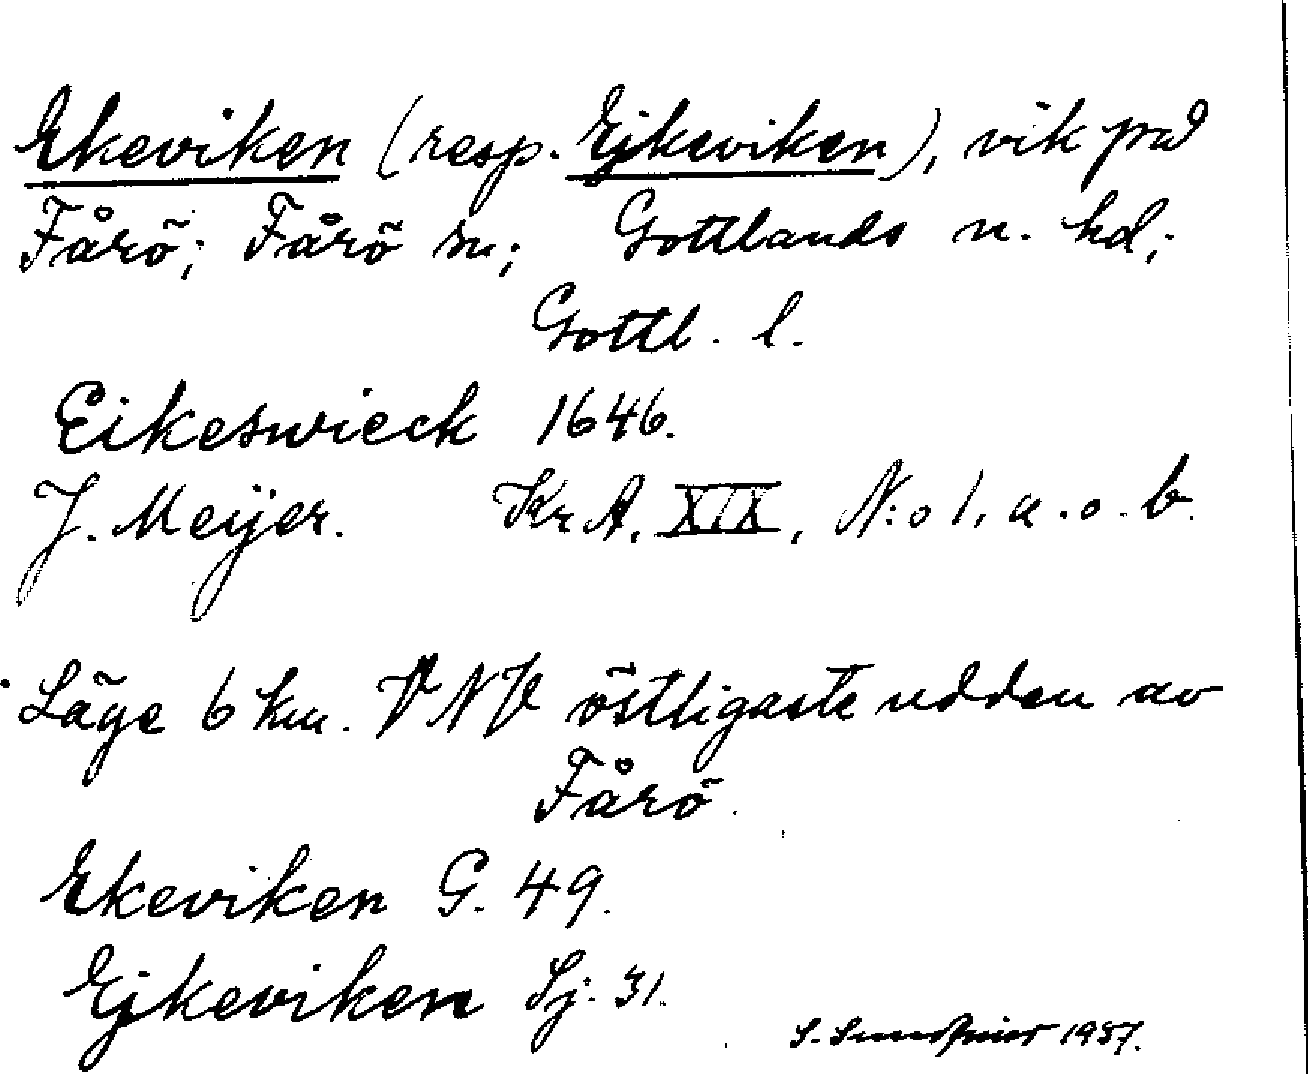 Ekeviken (resp. Ejkeviken), vik på
Fårö; Fårö sn; Gottlands n. hd;
Gottl. l.
Eikeswieck 1646.
J. Meijer. Kr A. XIX, N:o 1. a. o. b.
Läge 6 km. VNV östligaste udden av
Fårö.
Ekeviken G. 49.
Ejkeviken Sj. 31.
S. 1937.